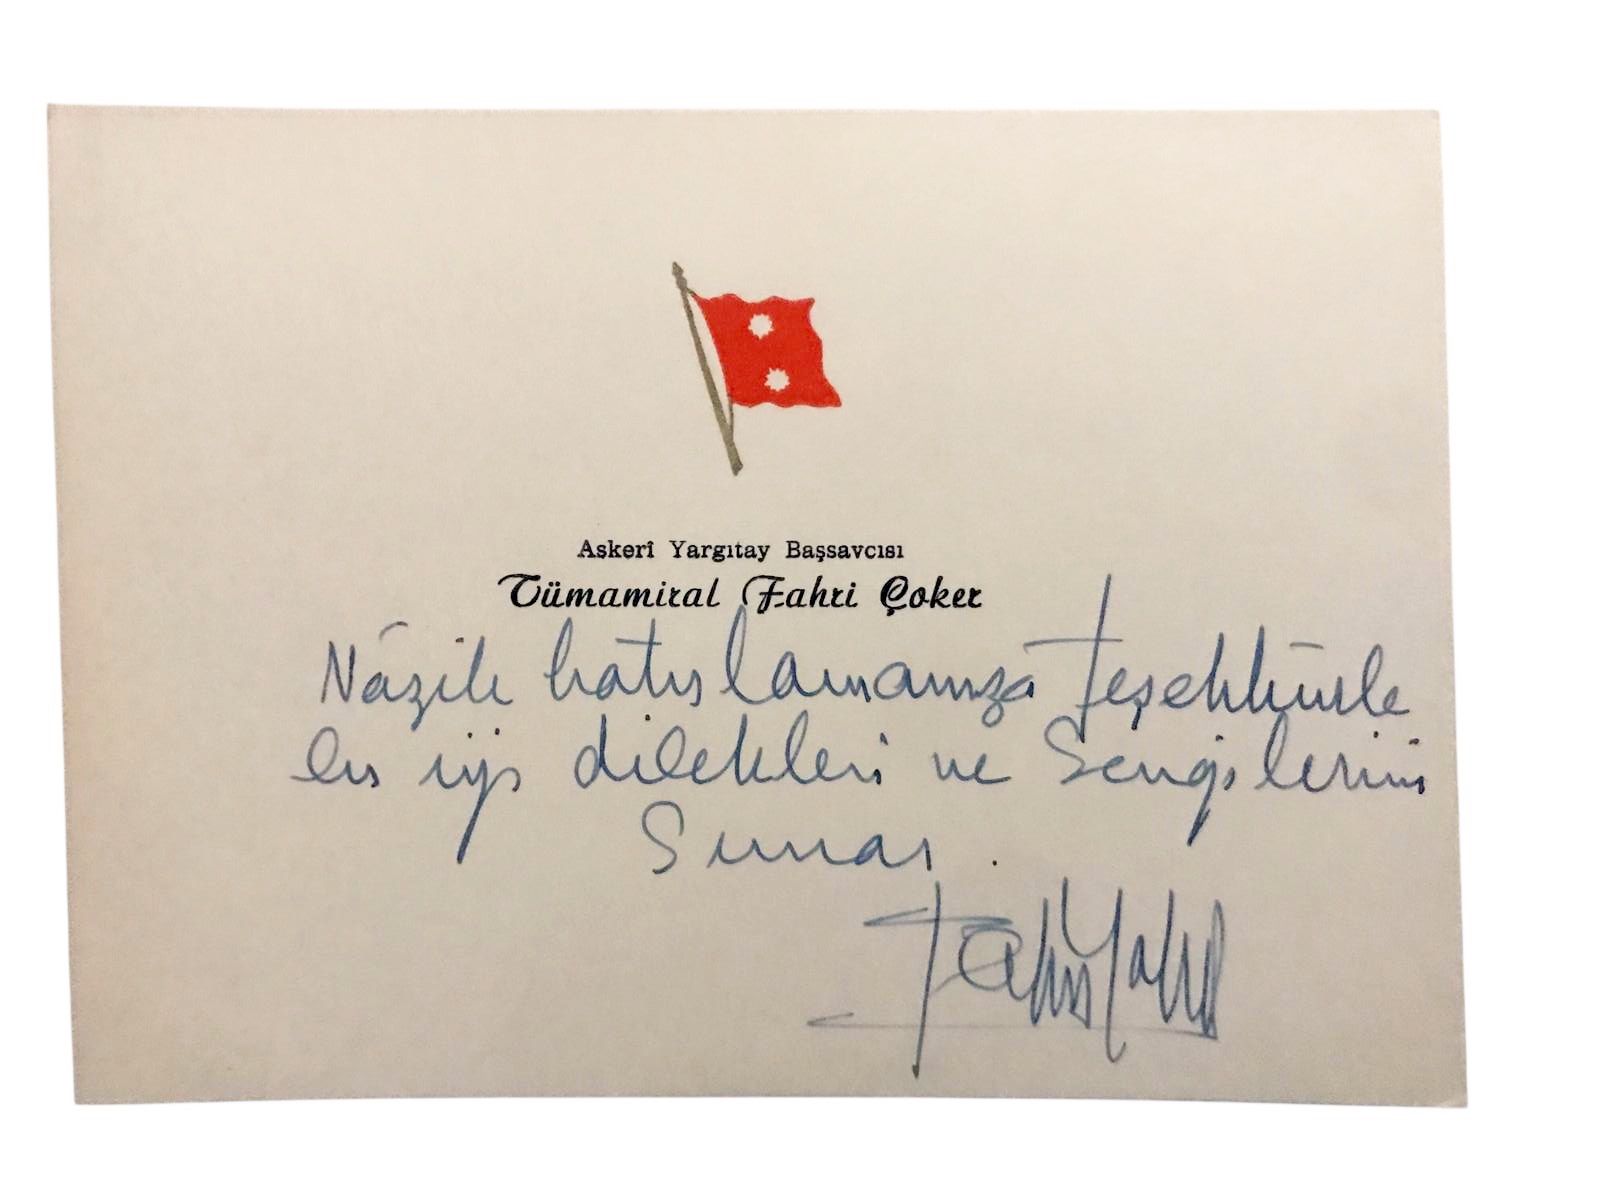 Askerî Yargıtay Başsavcısı
Tümamiral Fahri Çoker
Nâzik hatırlamanıza teşekkürle
en iyi dilekleri ve sevgilerini
Sunar.